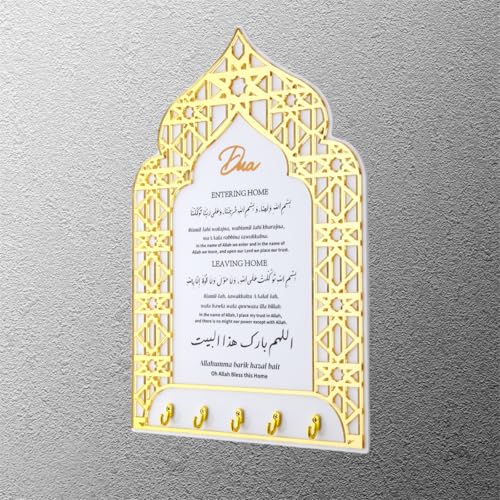 Dua
ENTERING HOME
بِسْمِ اللهِ وَلَجْنَا، وَ بِسْمِ اللهِ خَرَجْنَا، وَعَلَى رَبِّنَا تَوَكَّلْنَا
Bismil lahi walajna, wabismil lahi kharajna,
wa L kala rabbina tawakkalna.
In the name of Allah we enter and in the name of
Allah we leave, and upon our Lord we place our trust.
LEAVING HOME
بِسْمِ اللهِ تَوَكَّلْتُ عَلَى اللهِ، وَلَا حَوْلَ وَلَا قُوَّةَ إِلَّا بِاللهِ
Bismil lahi, tawakkaltu A Lalal lah,
wala hawla wala quwwata illa billah.
In the name of Allah, I place my trust in Allah,
and there is no might nor power except with Allah.
اللهم بارك هذا البيت
Allahumma barik hazal bait
Oh Allah Bless this Home